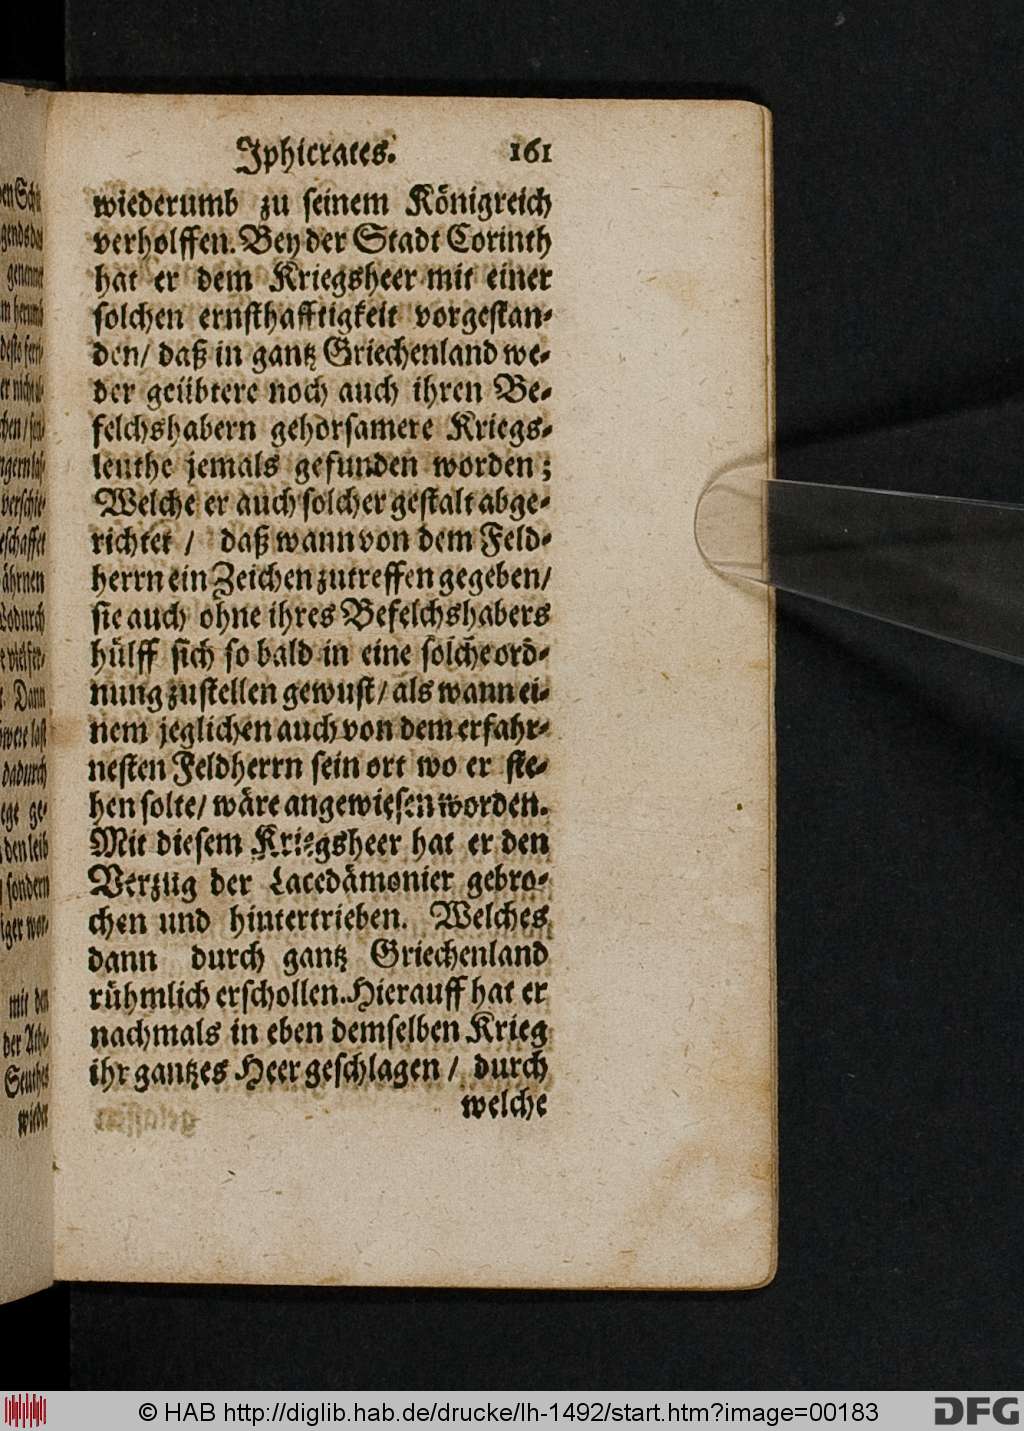 Iphicrates. 161
wiederumb zu seinem Königreich
verholffen. Bey der Stadt Corinth
hat er dem Kriegsheer mit einer
solchen ernsthafftigkeit vorgestan-
den/ daß in gantz Griechenland we-
der geübtere noch auch ihren Be-
felchshabern gehorsamere Kriegs-
leuthe jemals gefunden worden;
Welche er auch solcher gestalt abge-
richtet / daß wann von dem Feld-
herrn ein Zeichen zutreffen gegeben/
sie auch ohne ihres Befelchshabers
hülff sich so bald in eine solche ord-
nung zustellen gewust/ als wann ei-
nem jeglichen auch von dem erfahr-
nesten Feldherrn sein ort wo er ste-
hen solte/ wäre angewiesen worden.
Mit diesem Kriegsheer hat er den
Verzug der Lacedämonier gebro-
chen und hintertrieben. Welches
dann durch gantz Griechenland
rühmlich erschollen. Hierauff hat er
nachmals in eben demselben Krieg
ihr gantzes Heer geschlagen / durch
welche
© HAB http://diglib.hab.de/drucke/lh-1492/start.htm?image=00183
DFG